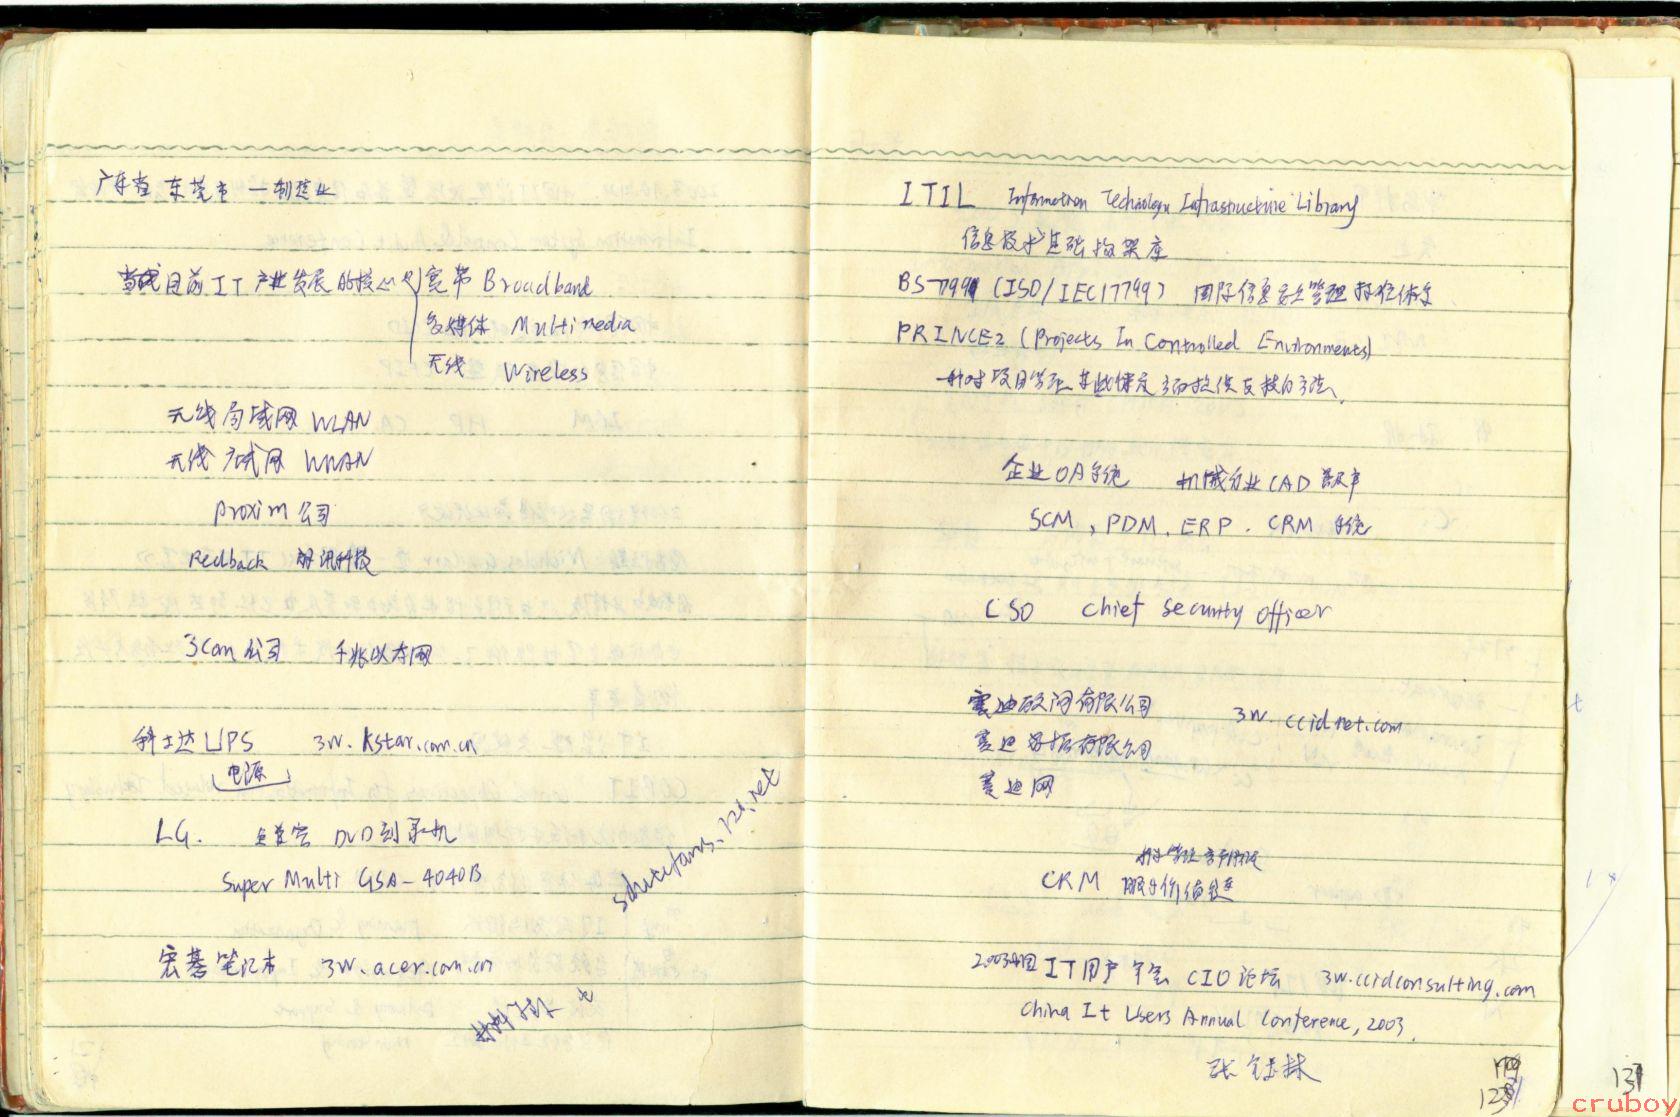 广东省 东莞市 — 制造业
目前IT产业发展的核心 宽带 Broadband
多媒体 Multimedia
无线 Wireless
无线局域网 WLAN
无线广域网 WWAN
Proxim 公司
Redback
3Com 公司 千兆以太网
科士达 UPS 3W.kstar.com.cn
电源
LG. DVD刻录机
Super Multi GSA-4040B
宏碁笔记本 3W.acer.com.cn
ITIL Information Technology Infrastructure Library
信息技术基础构架库
BS7799 (ISO/IEC17799) 国际信息安全管理标准体系
PRINCE2 (Projects In Controlled Environments)
企业OA系统 机械行业CAD
SCM, PDM, ERP. CRM 系统
CSO Chief Security Officer
赛迪顾问有限公司 3W.ccidnet.com
赛迪数据有限公司
赛迪网
CRM 服务价值链
2003中国IT用户年会 CIO论坛 3W.ccidconsulting.com
China It Users Annual Conference, 2003.
137
cruboy